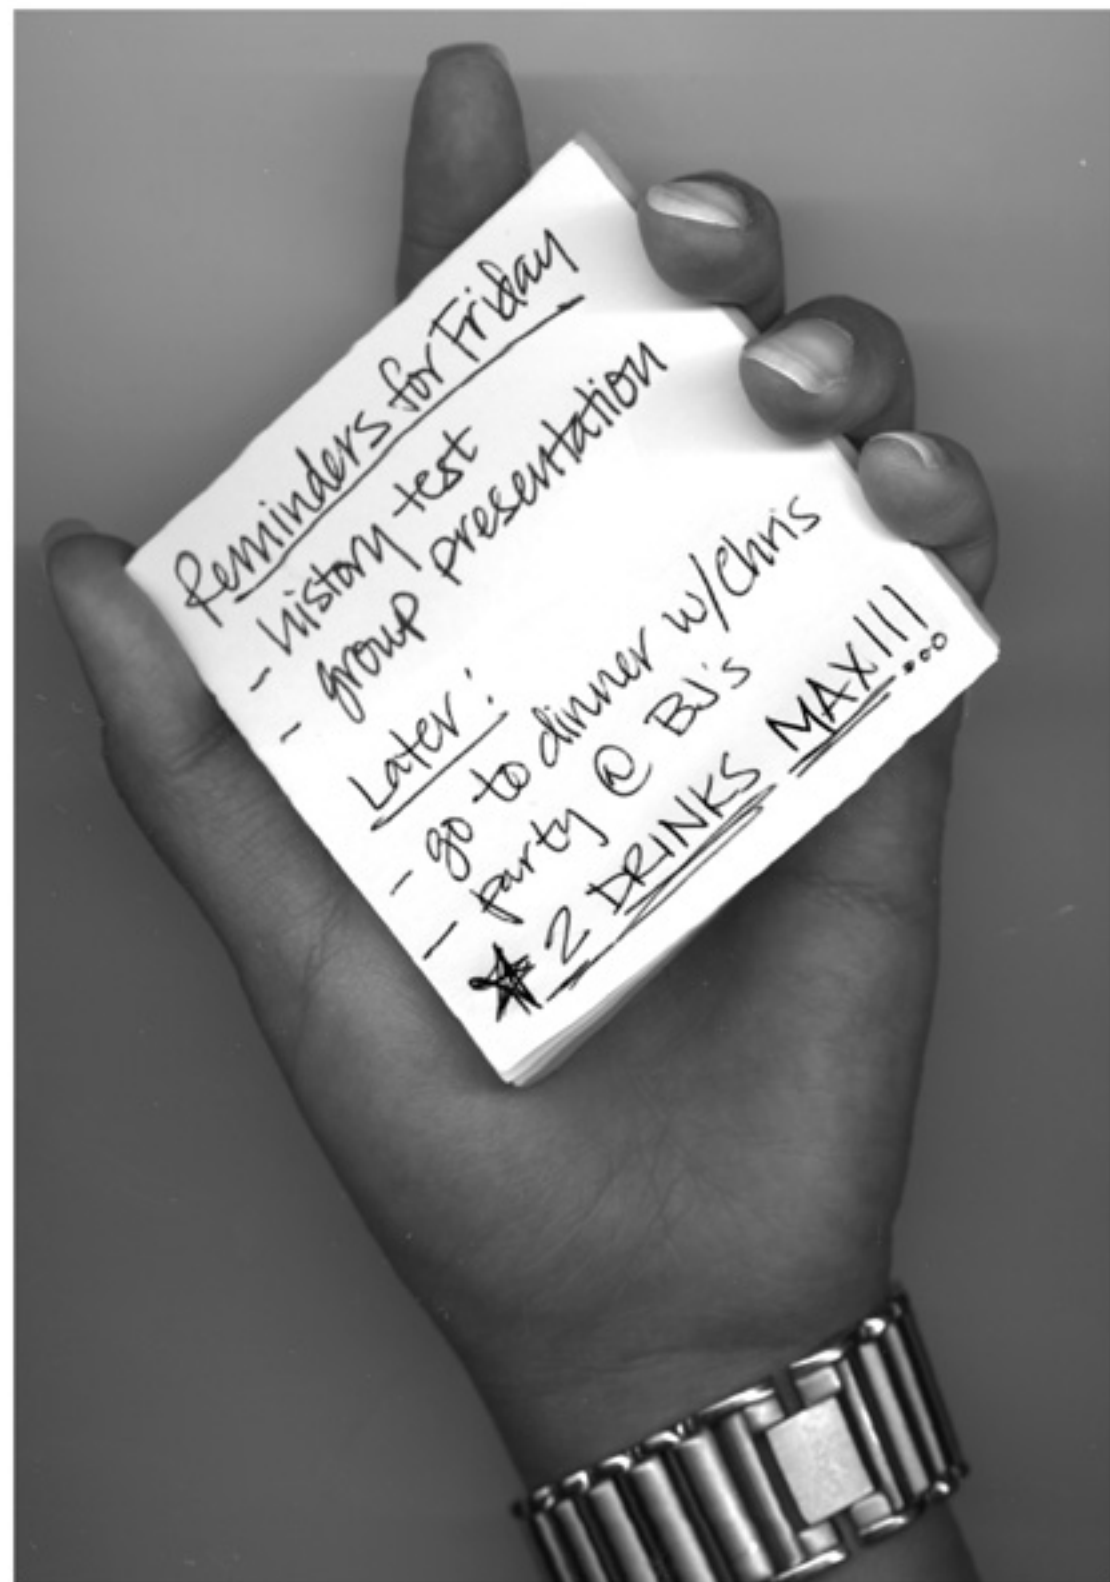 Reminders for Friday
- history test
- group presentation
Later:
- go to dinner w/Chris
- party @ BJ's
★ 2 DRINKS MAX!!!